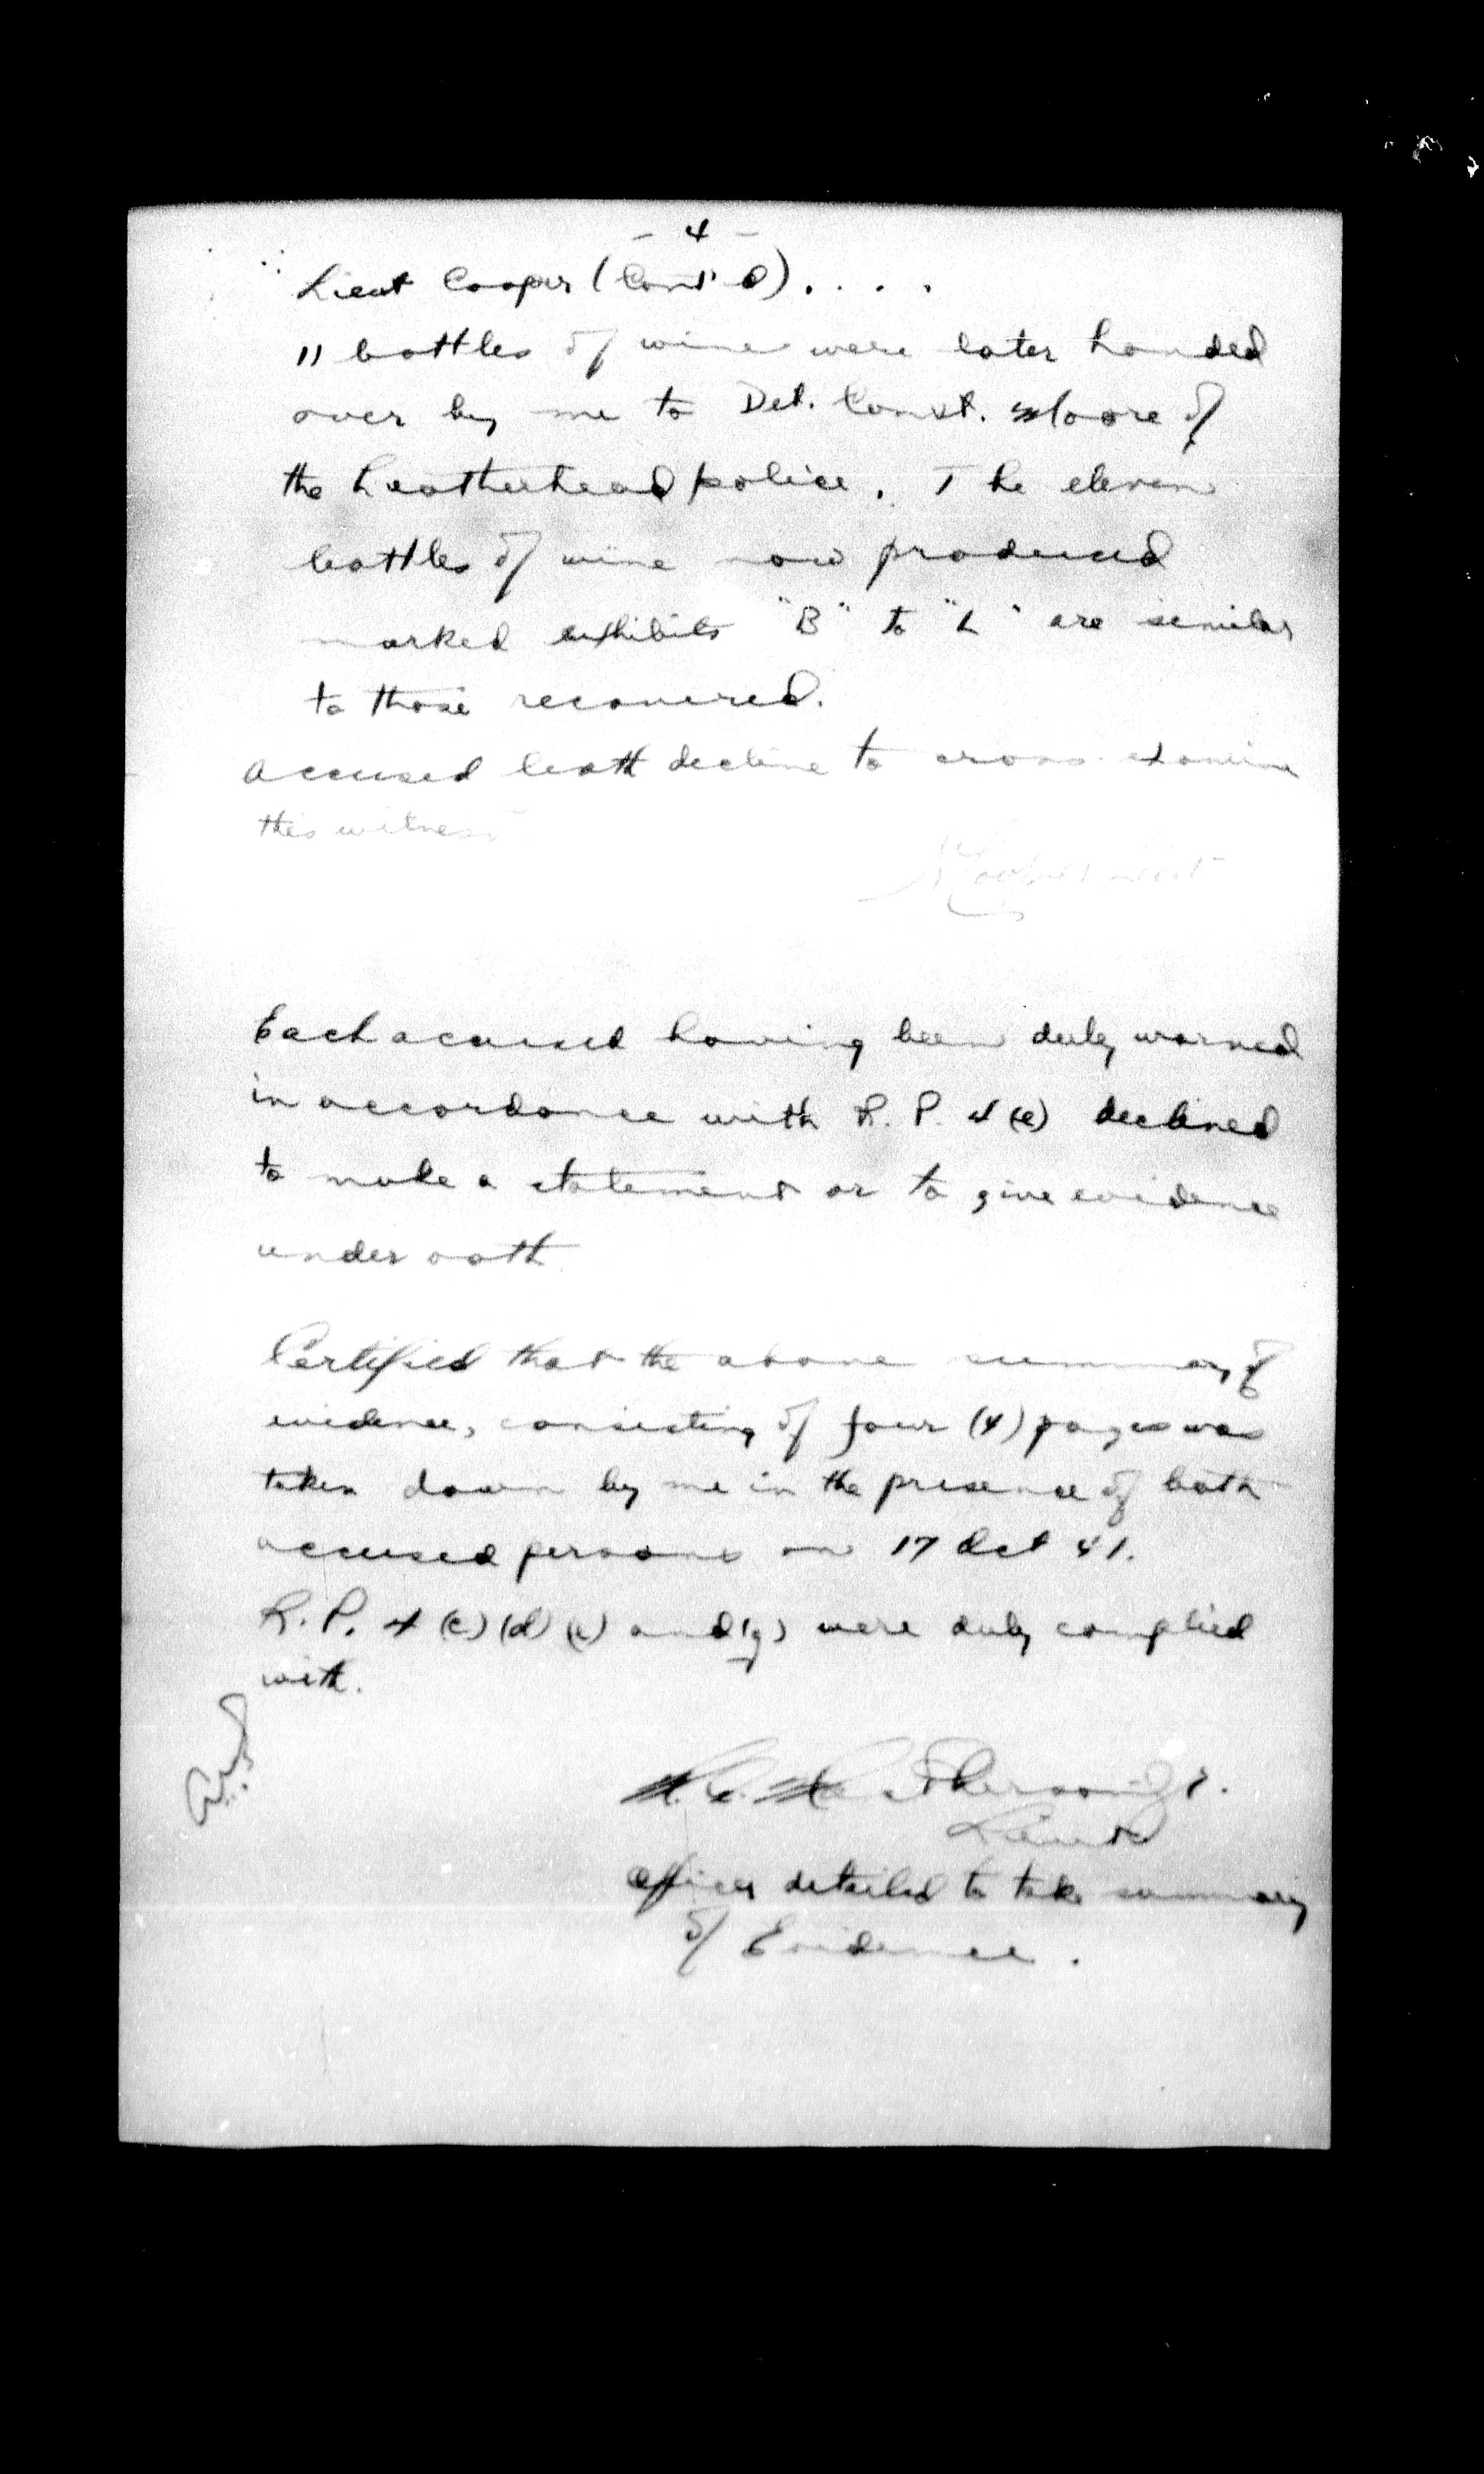 - 4 -
Lieut Cooper (Cont'd) . . . .
11 bottles of wine were later handed
over by me to Det. Const. Moore of
the Leatherhead police. The eleven
bottles of wine now produced
marked exhibits "B" to "L" are similar
to those recovered.
Accused both decline to cross-examine
this witness
Cooper Lieut
Each accused having been duly warned
in accordance with R. P. 4 (e) declined
to make a statement or to give evidence
under oath
Certified that the above summary of
evidence, consisting of four (4) pages was
taken down by me in the presence of both
accused persons on 17 Oct 41.
R. P. 4 (c) (d) (e) and (g) were duly complied
with.
Lieut
Officer detailed to take summary
of Evidence.